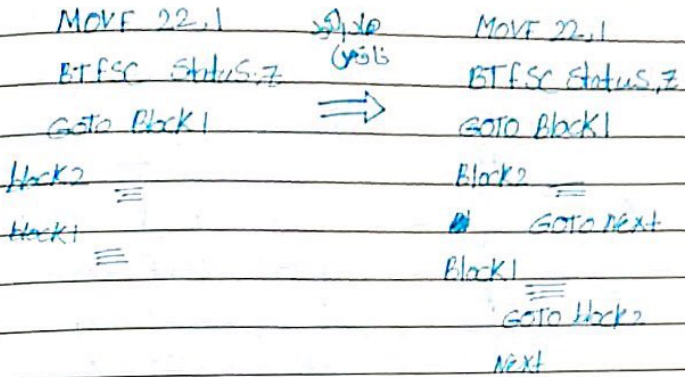 MOVF 22,1
BTFSC Status,Z
GOTO Block1
block2
block1
هذا الكود
ناقص
MOVF 22,1
BTFSC Status,Z
GOTO Block1
Block2
GOTO next
Block1
GOTO block2
Next